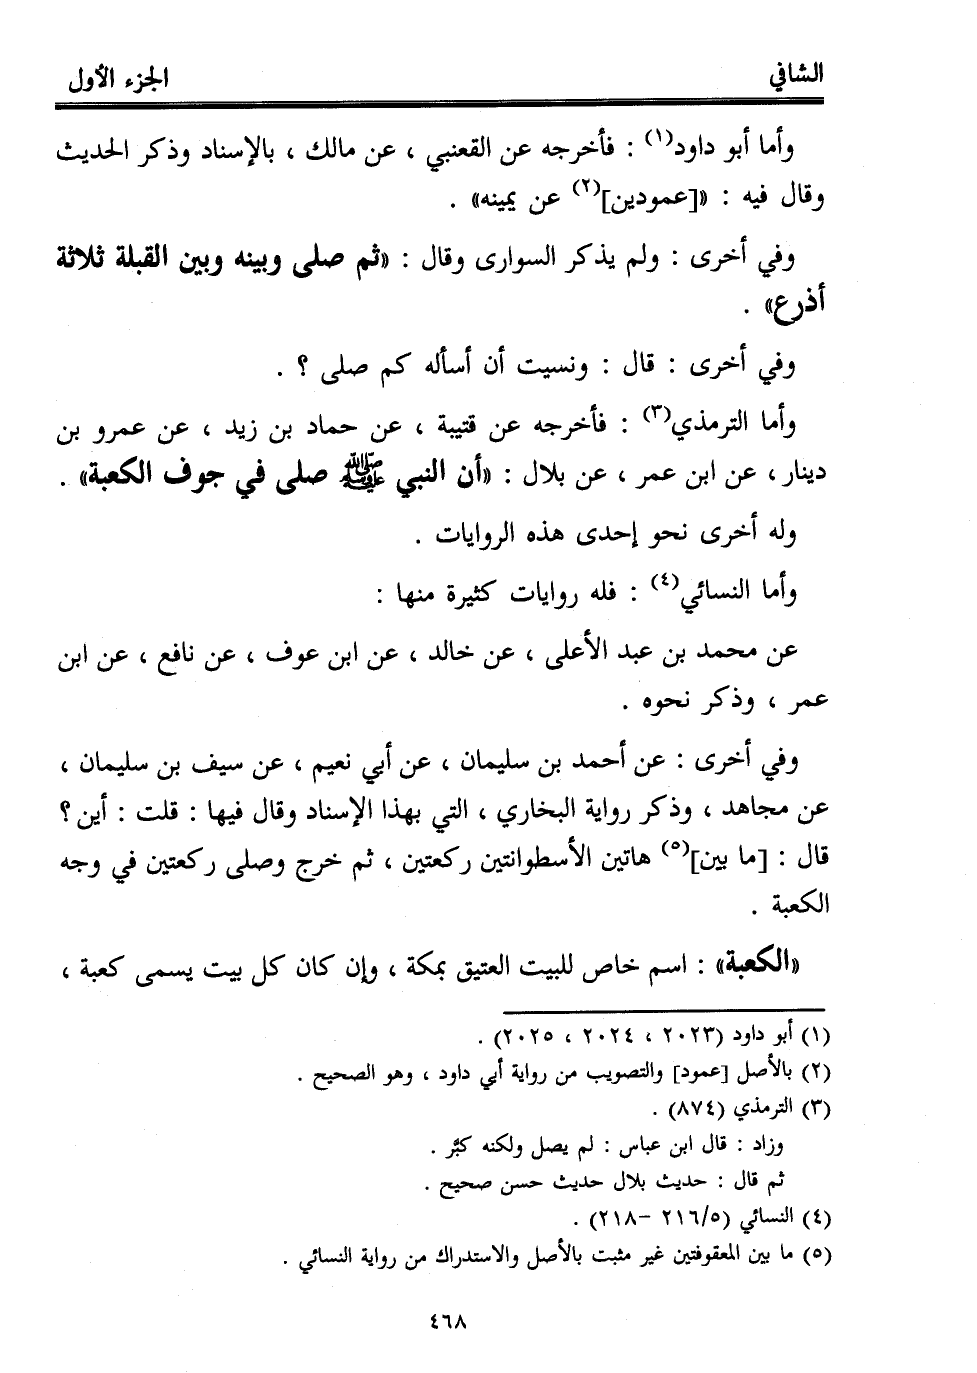 الشافي
الجزء الأول
وأما أبو داود(١) : فأخرجه عن القعنبي ، عن مالك ، بالإسناد وذكر الحديث
وقال فيه : «[عمودين](٢) عن يمينه» .
وفي أخرى : ولم يذكر السوارى وقال : «ثم صلى وبينه وبين القبلة ثلاثة
أذرع» .
وفي أخرى : قال : ونسيت أن أسأله كم صلى ؟ .
وأما الترمذي(٣) : فأخرجه عن قتيبة ، عن حماد بن زيد ، عن عمرو بن
دينار ، عن ابن عمر ، عن بلال : «أن النبي ﷺ صلى في جوف الكعبة» .
وله أخرى نحو إحدى هذه الروايات .
وأما النسائي(٤) : فله روايات كثيرة منها :
عن محمد بن عبد الأعلى ، عن خالد ، عن ابن عوف ، عن نافع ، عن ابن
عمر ، وذكر نحوه .
وفي أخرى : عن أحمد بن سليمان ، عن أبي نعيم ، عن سيف بن سليمان ،
عن مجاهد ، وذكر رواية البخاري ، التي بهذا الإسناد وقال فيها : قلت : أين ؟
قال : [ما بين](٥) هاتين الأسطوانتين ركعتين ، ثم خرج وصلى ركعتين في وجه
الكعبة .
«الكعبة» : اسم خاص للبيت العتيق بمكة ، وإن كان كل بيت يسمى كعبة ،
(١) أبو داود (٢٠٢٣ ، ٢٠٢٤ ، ٢٠٢٥) .
(٢) بالأصل [عمود] والتصويب من رواية أبي داود ، وهو الصحيح .
(٣) الترمذي (٨٧٤) .
وزاد : قال ابن عباس : لم يصل ولكنه كبَّر .
ثم قال : حديث بلال حديث حسن صحيح .
(٤) النسائي (٥/٢١٦ -٢١٨) .
(٥) ما بين المعقوفتين غير مثبت بالأصل والاستدراك من رواية النسائي .
٤٦٨